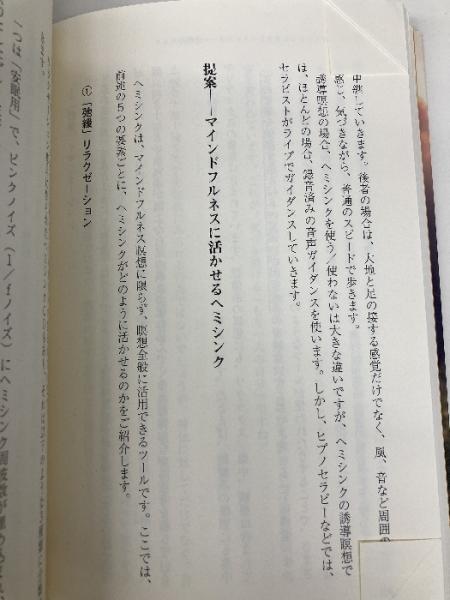 中継していきます。後者の場合は、大地と足の接する感覚だけでなく、風、音など周囲の
感じ、気づきながら、普通のスピードで歩きます。
誘導瞑想の場合、ヘミシンクを使う／使わないは大きな違いですが、ヘミシンクの誘導瞑想で
は、ほとんどの場合、録音済みの音声ガイダンスを使います。しかし、ヒプノセラピーなどでは、
セラピストがライブでガイダンスしていきます。
提案——マインドフルネスに活かせるヘミシンク
ヘミシンクは、マインドフルネス瞑想に限らず、瞑想全般に活用できるツールです。ここでは、
前述の５つの要素ごとに、ヘミシンクがどのように活かせるのかをご紹介します。
①「弛緩」リラクゼーション
一つは「安眠用」で、ピンクノイズ（１／ｆノイズ）にヘミシンク周波数が埋め